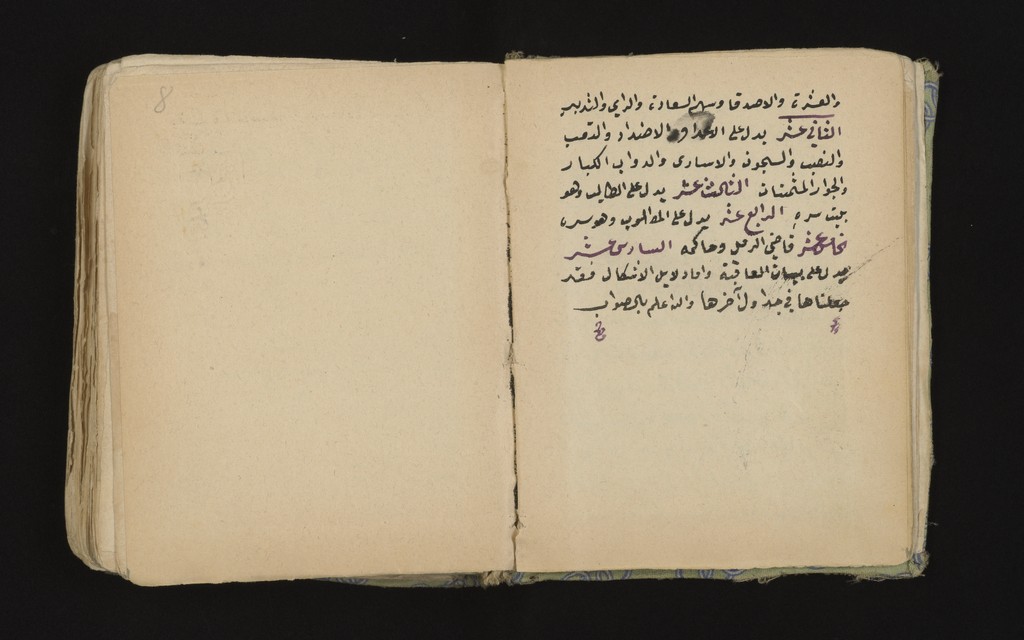 والعشرة والاصدقا وسهم السعادة والراي والتدبير
الثاني عشر يدل على الاعداء والاضداد والتعب
والنصب والسجون والاسارى والدواب الكبار
والجوار المثمنات الثالث عشر يدل على الطالب وهو
بيت سره الرابع عشر يدل على المطلوب وهو سره
عشر قاضي الرمل وحاكمه السادس عشر
يدل على العاقبة واما دلايل الاشكال فقد
جعلناها في جداول آخرها والله اعلم بالصواب
8